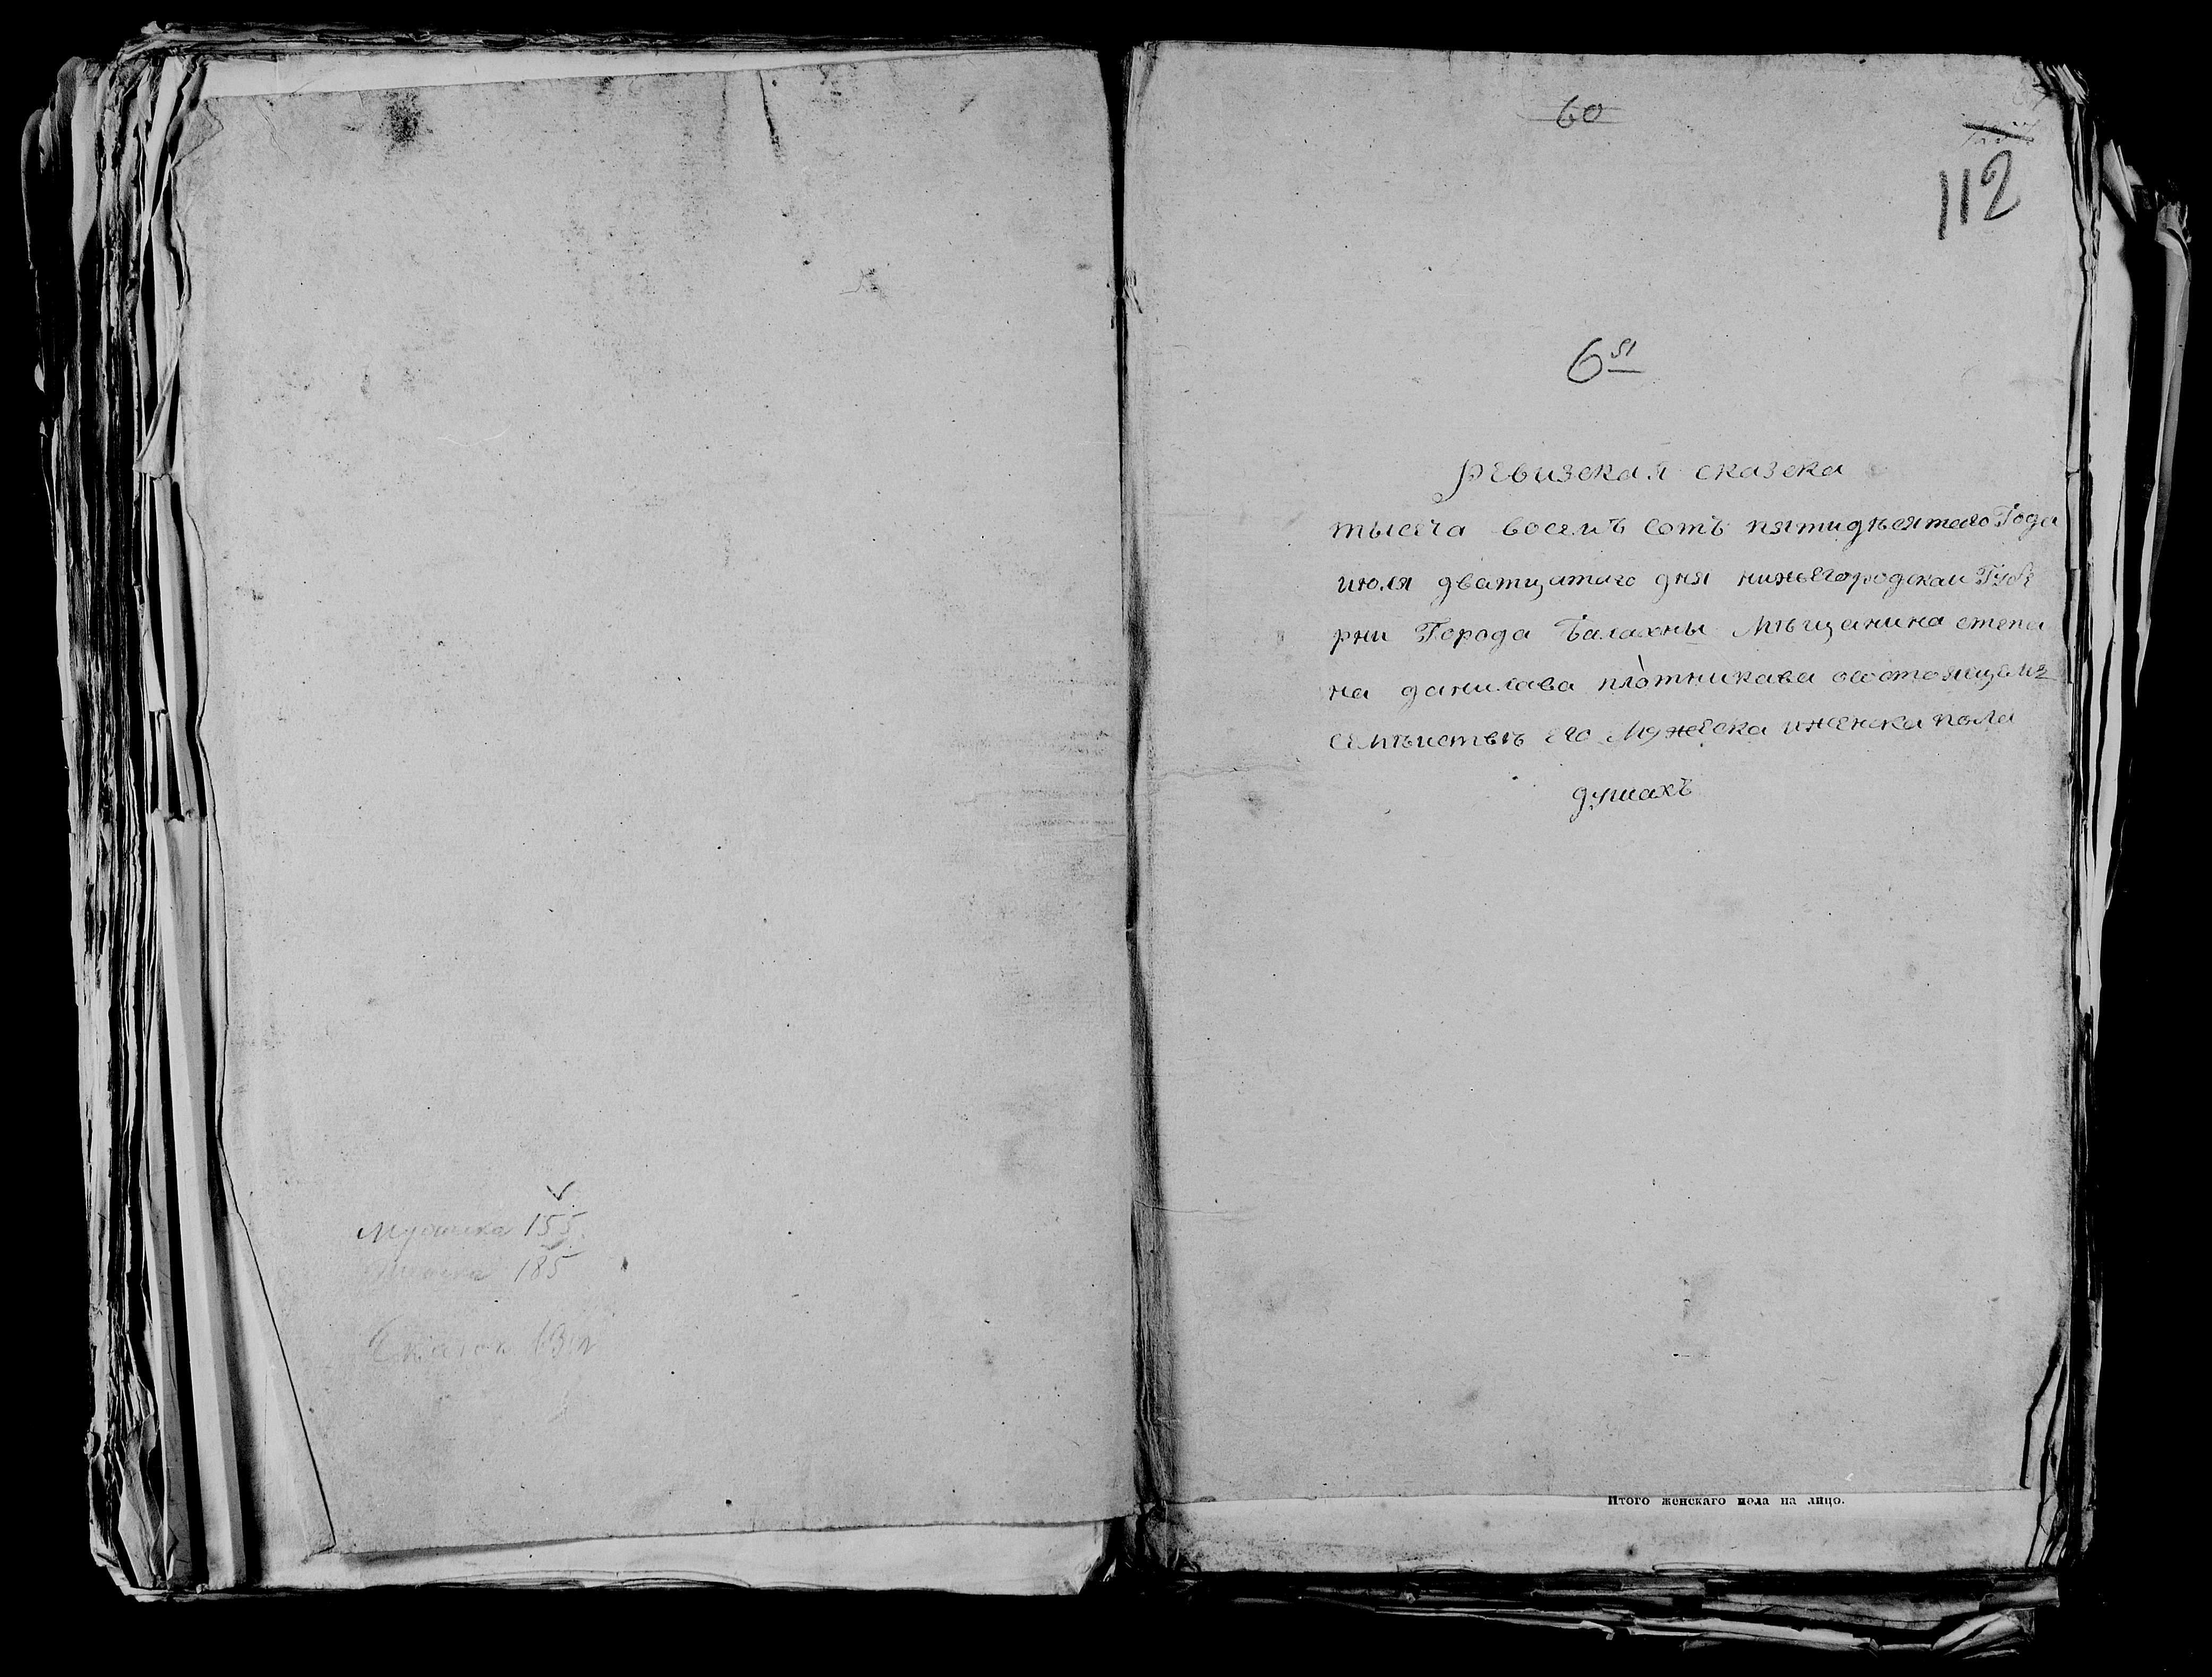 155
185
60
112
6я
ревизская сказска
тысеча восемъ сотъ пятидѣсятаго Года
июля дватцатаго дня нижъегородскаи Губѣ
рни Города Балахны Мѣщанина степа
на данилава плотникава осостоящемъ
семѣиствѣ его Мужеска иженска пола
душахъ
Итого женскаго пола на лицо.